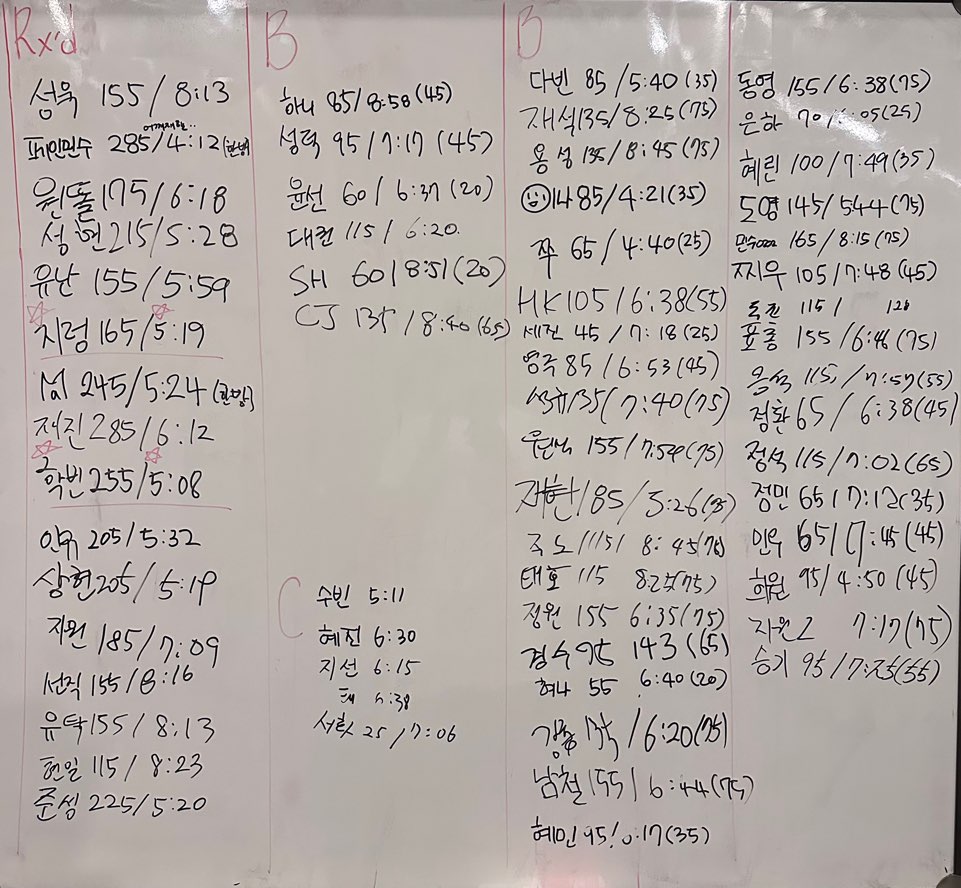 Rx'd
성욱 155/8:13
285/4:12
원돌 175/6:18
성현 215/5:28
유난 155/5:59
지렁 165/5:19
245/5:24
저진 285/6:12
학빈 255/5:08
205/5:32
상현 205/5:19
지원 185/7:09
선직 155/8:16
유탁 155/8:13
현일 115/8:23
준성 225/5:20
B
하니 85/8:58 (45)
성력 95/7:17 (45)
윤선 60/6:37 (20)
115/6:20
SH 60/8:51 (20)
CJ 135/8:40 (65)
C
수빈 5:11
혜진 6:30
지선 6:15
25/7:06
B
다빈 85/5:40 (35)
재석 135/8:25 (75)
용성 135/8:45 (75)
85/4:21 (35)
쭈 65/4:40 (25)
HK 105/6:38 (55)
세진 45/7:18 (25)
영주 85/6:53 (45)
135/7:40 (75)
155/7:54 (75)
185/5:26
8:45 (75)
태호 115 8:25 (75)
정원 155 6:35 (75)
경수 95 (65)
혜나 55 6:40 (20)
6:20 (75)
남철 155/6:44 (75)
혜민 95 (35)
동영 155/6:38 (75)
은하 70 (25)
혜린 100/7:49 (35)
도영 145/5:44 (75)
165/8:15 (75)
찌우 105/7:48 (45)
115/
표총 155/6:46 (75)
115/7:57 (55)
정환 65/6:38 (45)
정석 115/7:02 (65)
정민 65/7:12 (35)
민우 65/7:45 (45)
희원 95/4:50 (45)
지원2 7:17 (75)
승기 95/7:25 (55)